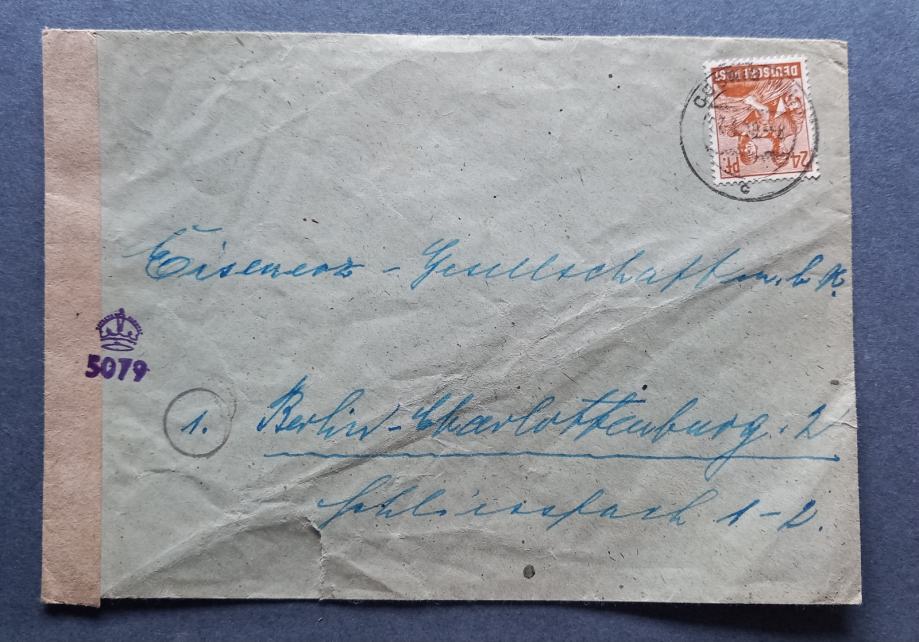 DEUTSCHE POST
24 PF.
Eisenerz - Gesellschaft m. b. H.
5079
1. Berlin-Charlottenburg. 2
Schliessfach 1-2.